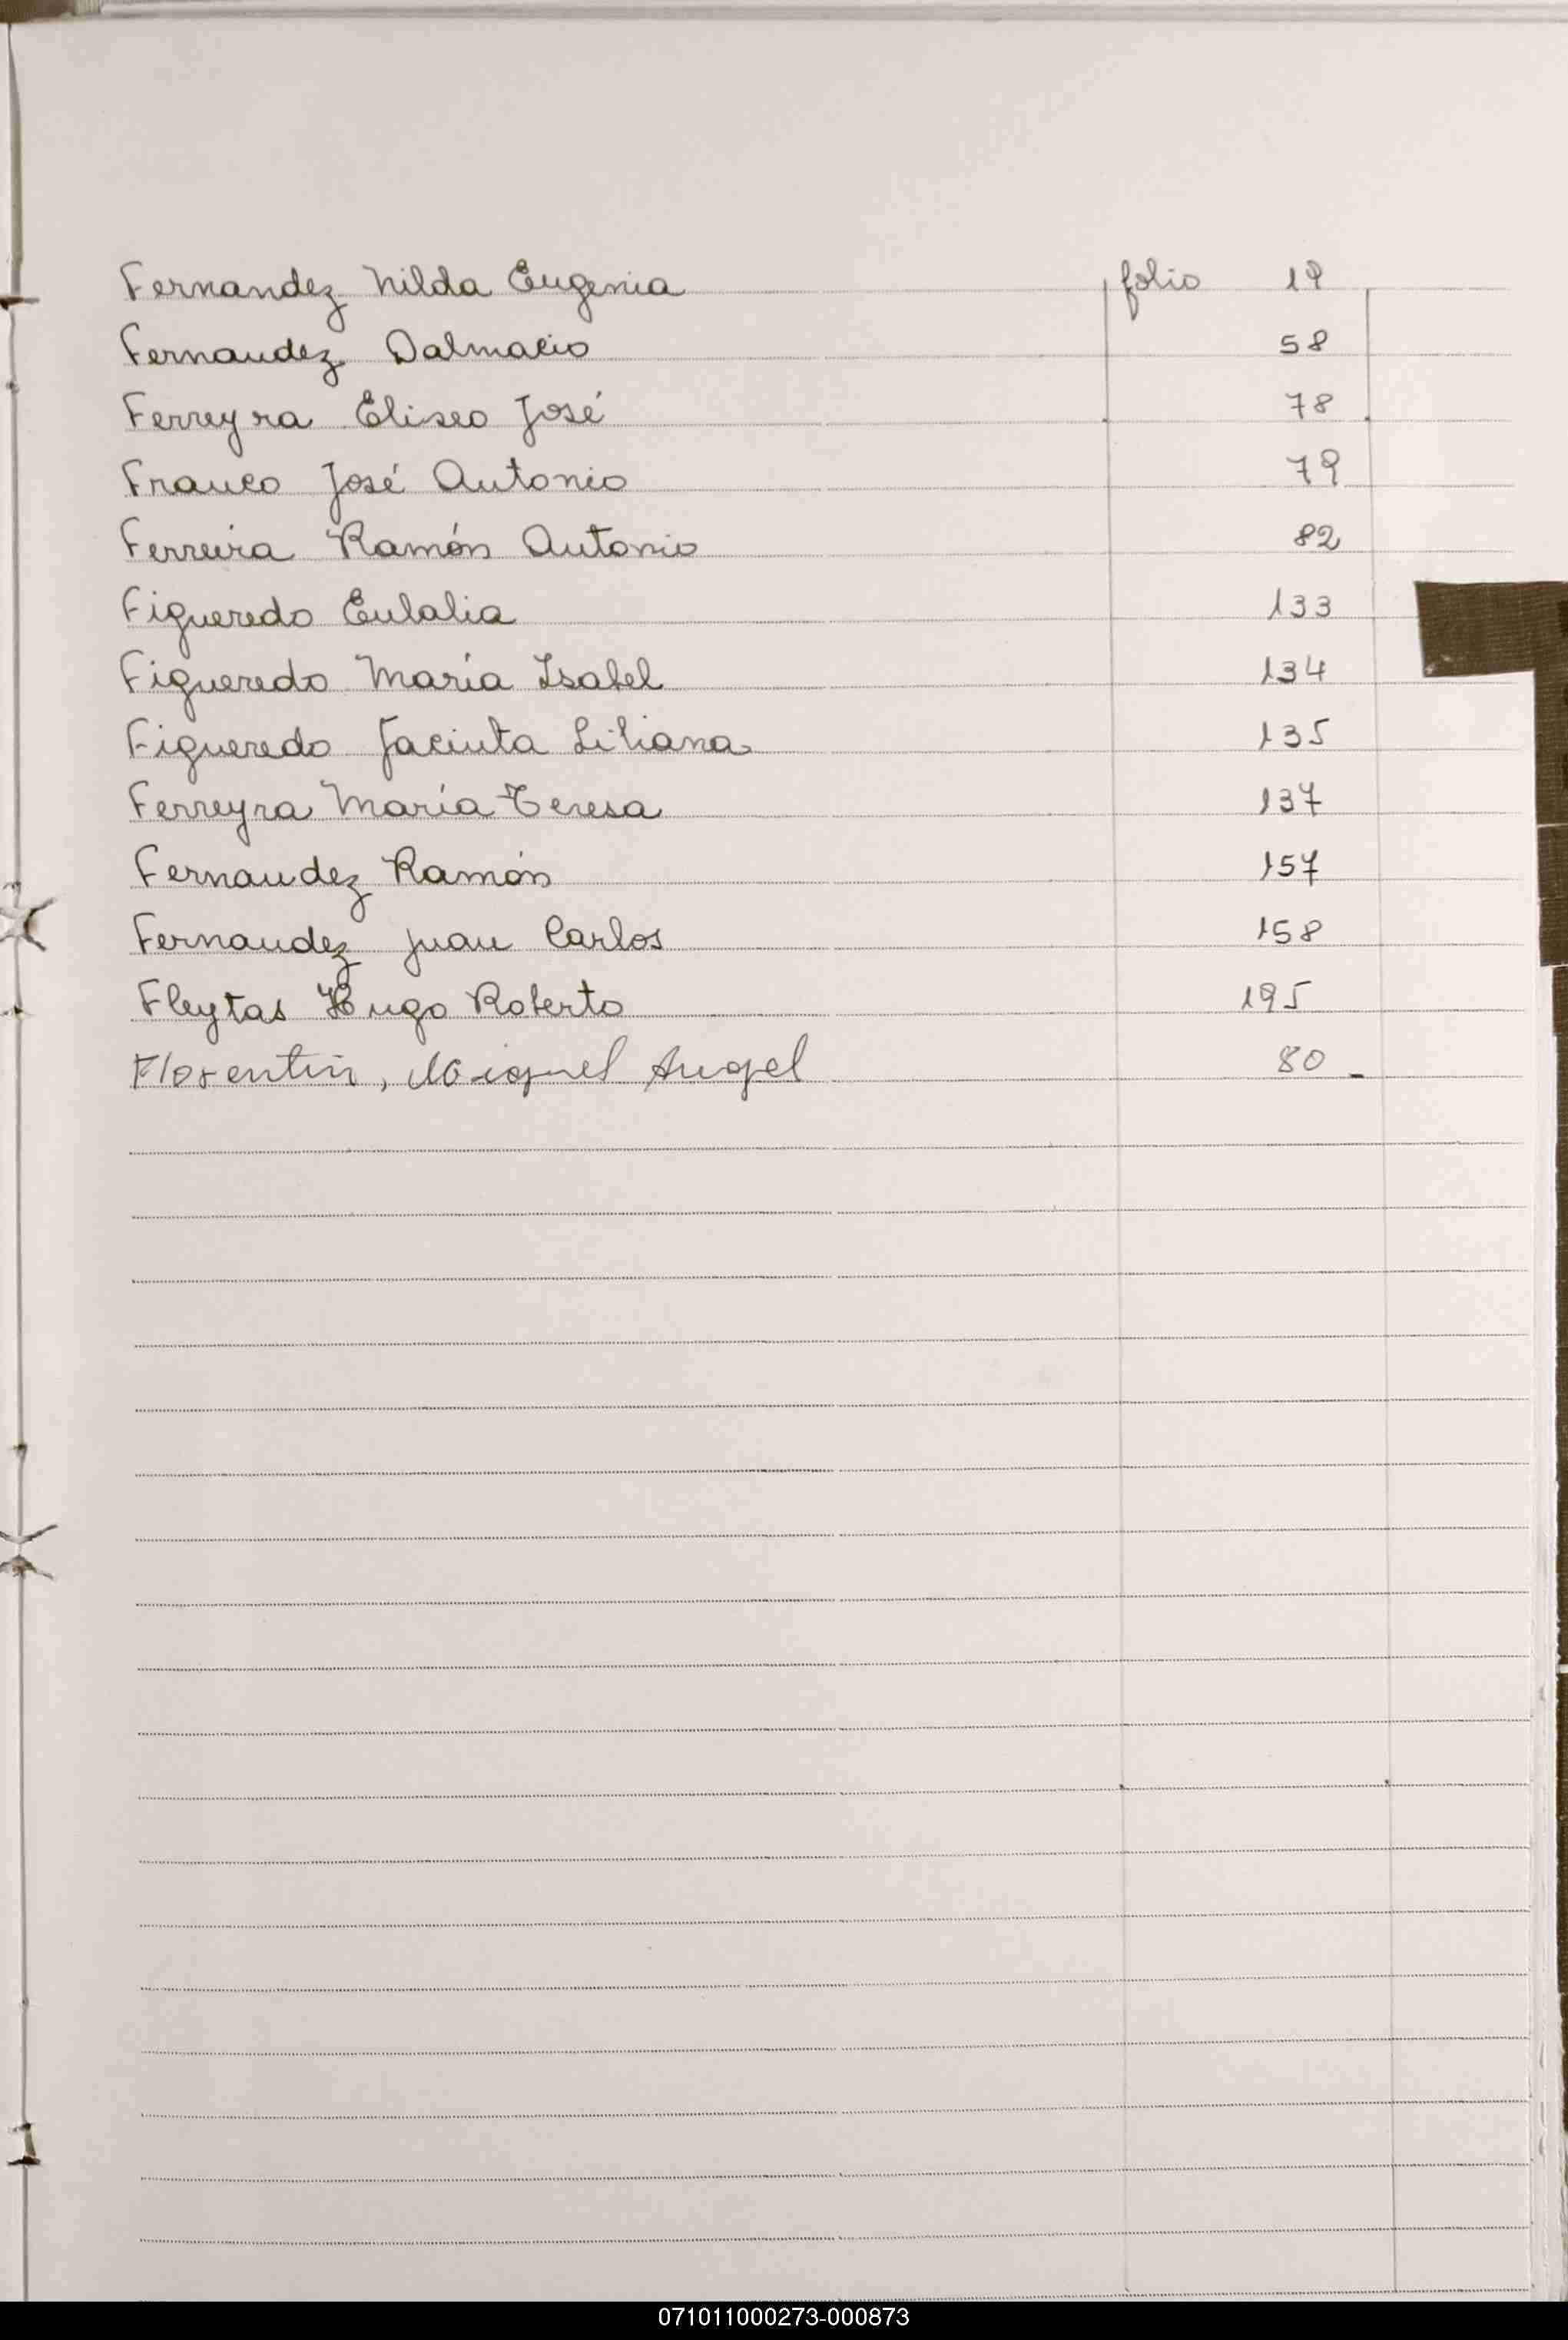 Fernandez Nilda Eugenia folio 19
Fernandez Dalmacio 58
Ferreyra Eliseo José 78
Franco José Antonio 79
Ferreira Ramón Antonio 82
Figueredo Eulalia 133
Figueredo María Isabel 134
Figueredo Jacinta Liliana 135
Ferreyra María Teresa 137
Fernandez Ramón 157
Fernandez Juan Carlos 158
Fleytas Hugo Roberto 195
Florentin, Miguel Angel 80 -
071011000273-000873